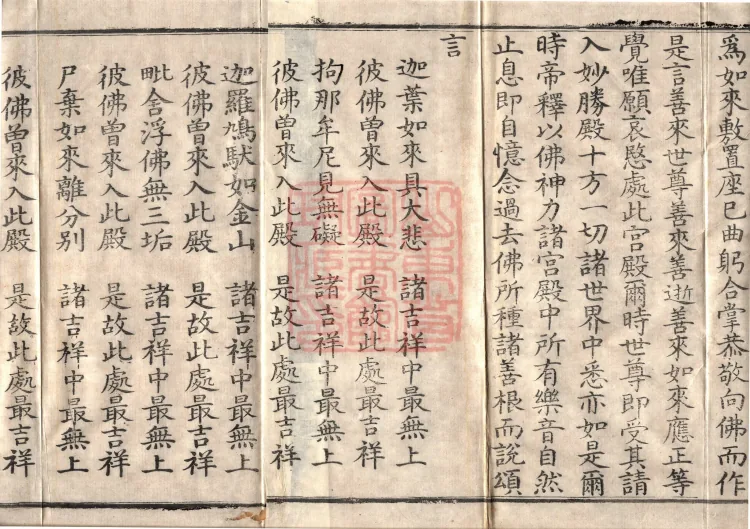 為如來敷置座已曲躬合掌恭敬向佛而作
是言善來世尊善來善逝善來如來應正等
覺唯願哀愍處此宮殿爾時世尊即受其請
入妙勝殿十方一切諸世界中悉亦如是爾
時帝釋以佛神力諸宮殿中所有樂音自然
止息即自憶念過去佛所種諸善根而說頌
言
迦葉如來具大悲　諸吉祥中最無上
彼佛曾來入此殿　是故此處最吉祥
拘那牟尼見無礙　諸吉祥中最無上
彼佛曾來入此殿　是故此處最吉祥
迦羅鳩馱如金山　諸吉祥中最無上
彼佛曾來入此殿　是故此處最吉祥
毗舍浮佛無三垢　諸吉祥中最無上
彼佛曾來入此殿　是故此處最吉祥
尸棄如來離分別　諸吉祥中最無上
彼佛曾來入此殿　是故此處最吉祥